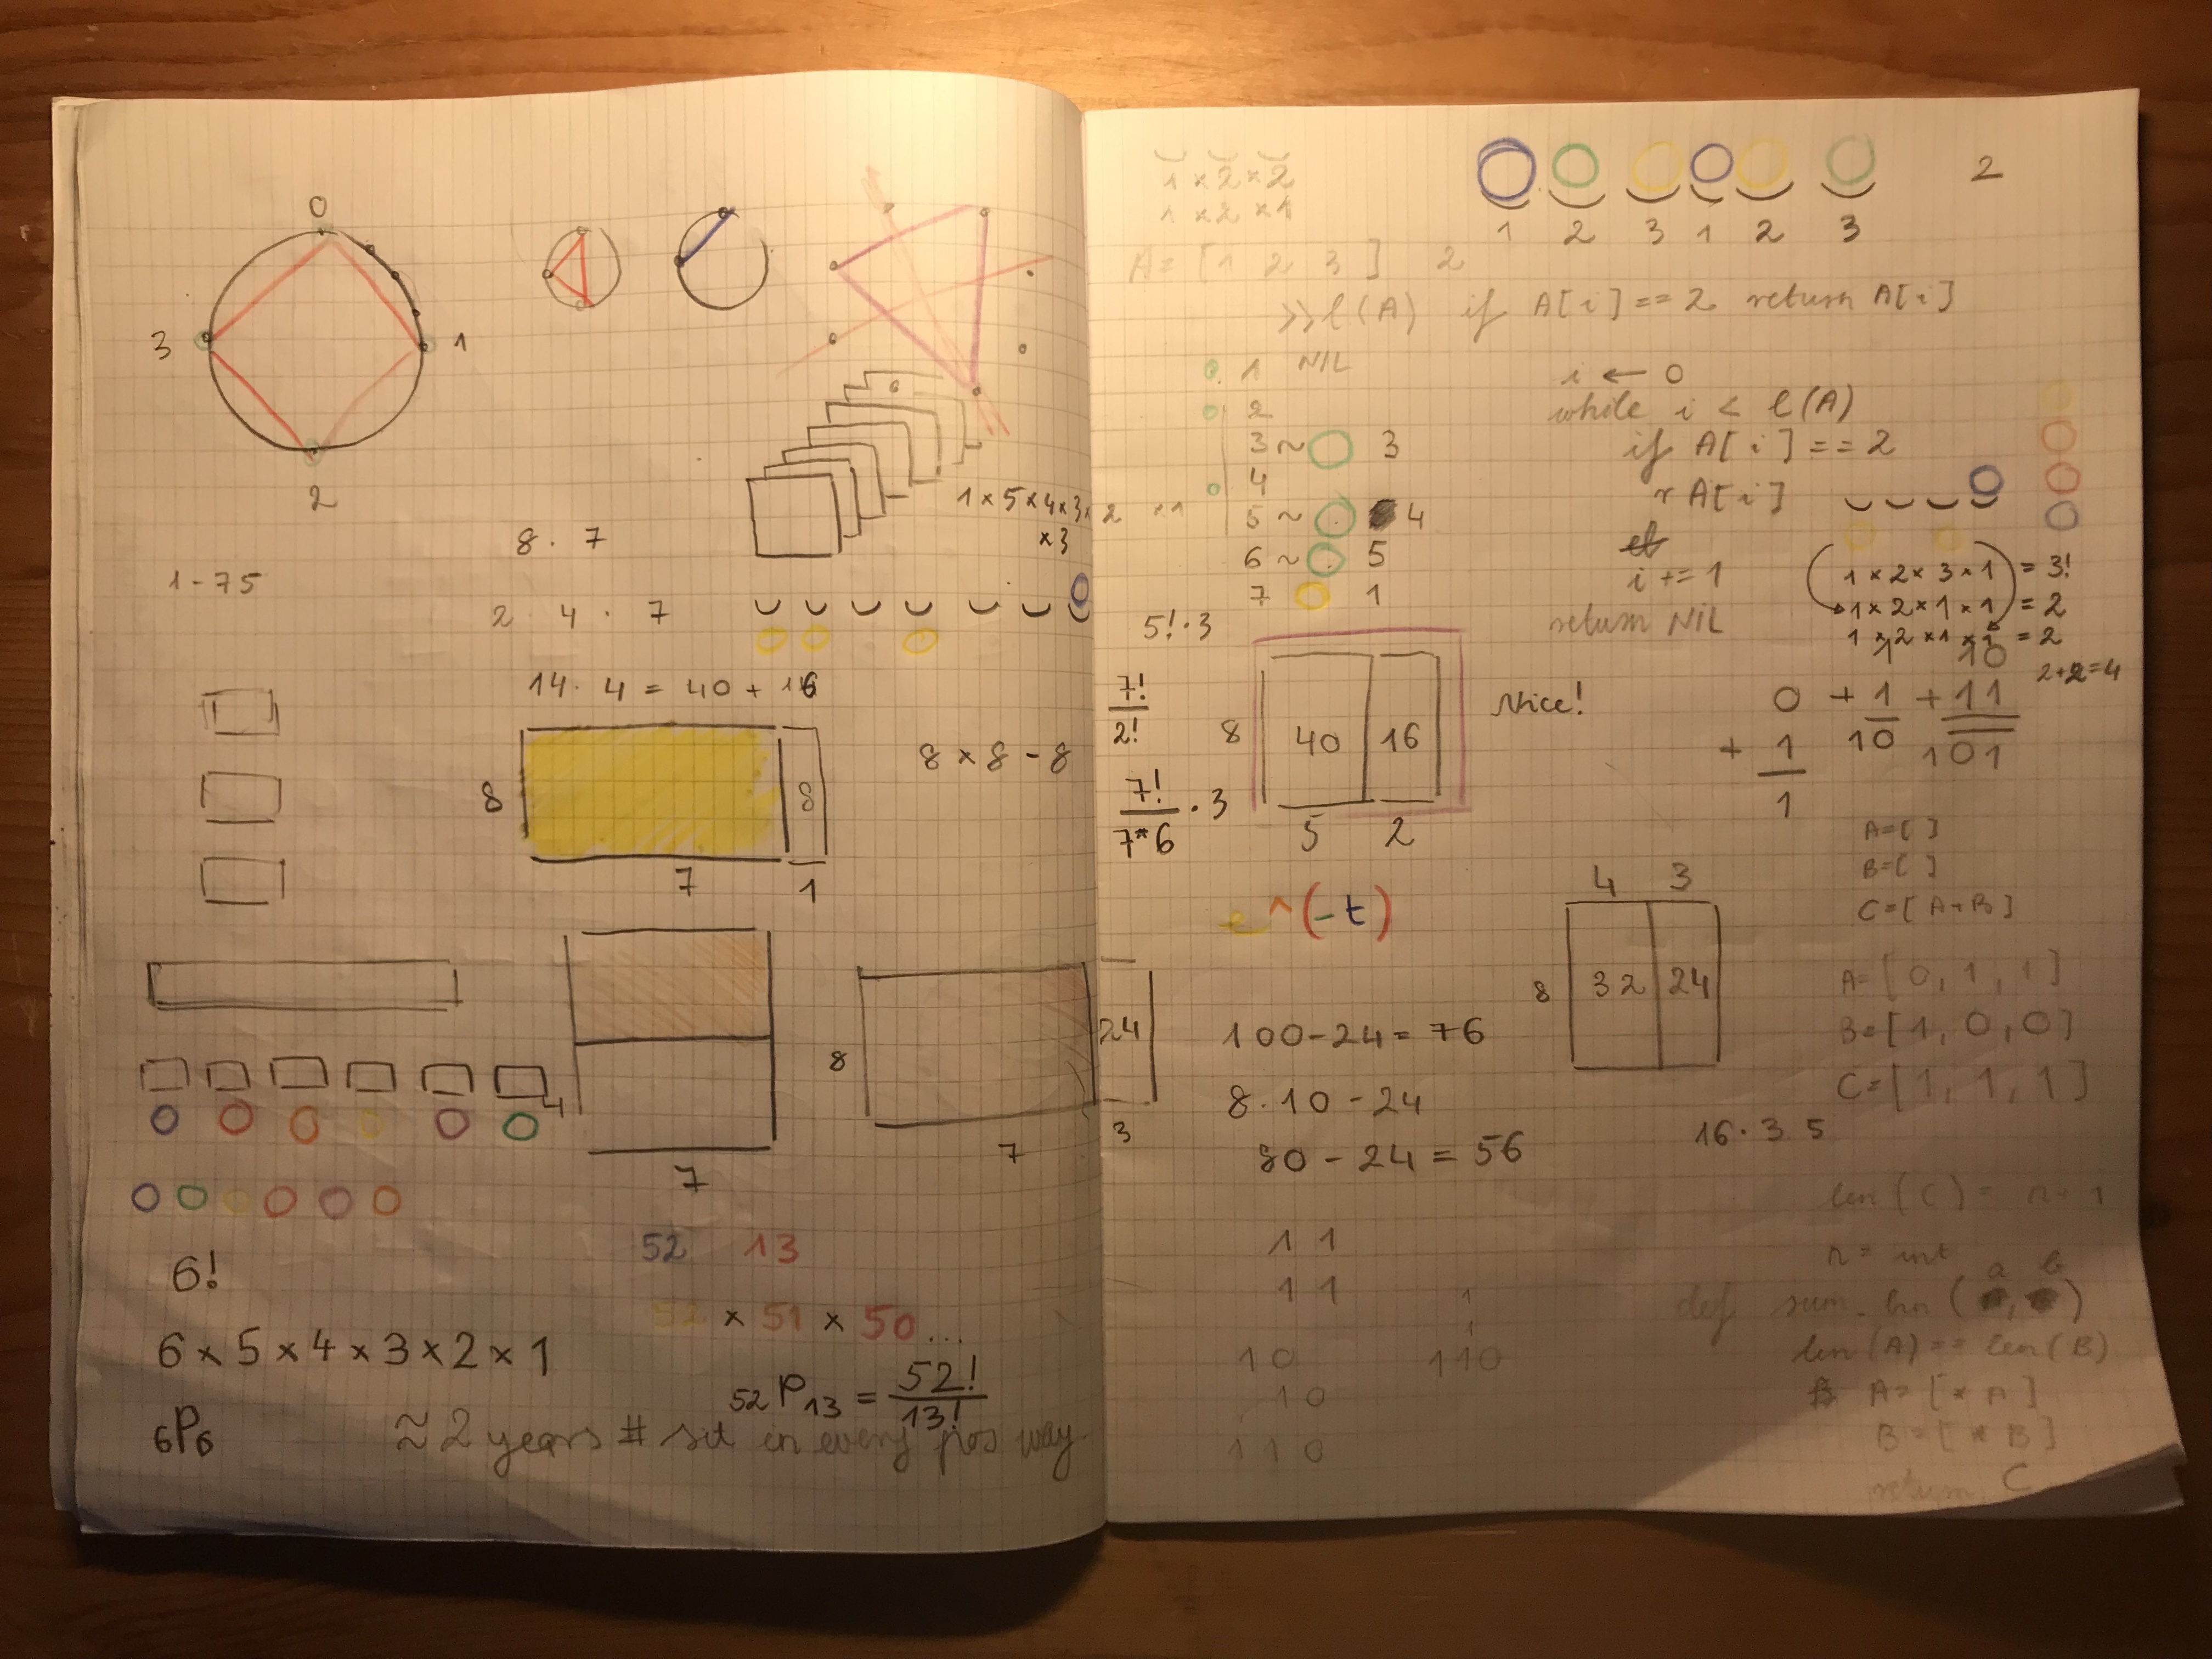 0
3
1
2
8 . 7
1 - 75
2 . 4 . 7
6
1 × 5 × 4 × 3 × 2 × 1
× 3
14 . 4 = 40 + 16
8
8
7
1
8 × 8 - 8
4
7
8
24
7
3
6!
6 × 5 × 4 × 3 × 2 × 1
6P6
52 13
52 × 51 × 50 ...
52P13 = 52!
13!
≈ 2 years # sit in every pos way
1 × 2 × 2
1 × 2 × 1
1 2 3 1 2 3
2
A = [ 1 2 3 ] 2
l(A) if A[i] == 2 return A[i]
1 NIL
2
3 ~ 3
4
5 ~ 4
6 ~ 5
7 1
i ← 0
while i < l(A)
if A[i] == 2
r A[i]
i += 1
return NIL
1 × 2 × 3 × 1 = 3!
1 × 2 × 1 × 1 = 2
1 × 2 × 1 × 1 = 2
2+2=4
5! . 3
7!
2!
7!
7*6
. 3
8
40 16
5 2
Nice!
1 10
0 + 1 + 11
+ 1 10 101
1
A=[ ]
B=[ ]
C=[ A+B ]
e^(-t)
4 3
8
32 24
100-24=76
8.10-24
80-24=56
A=[0, 1, 1]
B=[1, 0, 0]
C=[1, 1, 1]
16.3 5
11
11
10
10
110
1
1
110
n = int
a b
len(A) == len(B)
A = [* A]
B = [* B]
return C